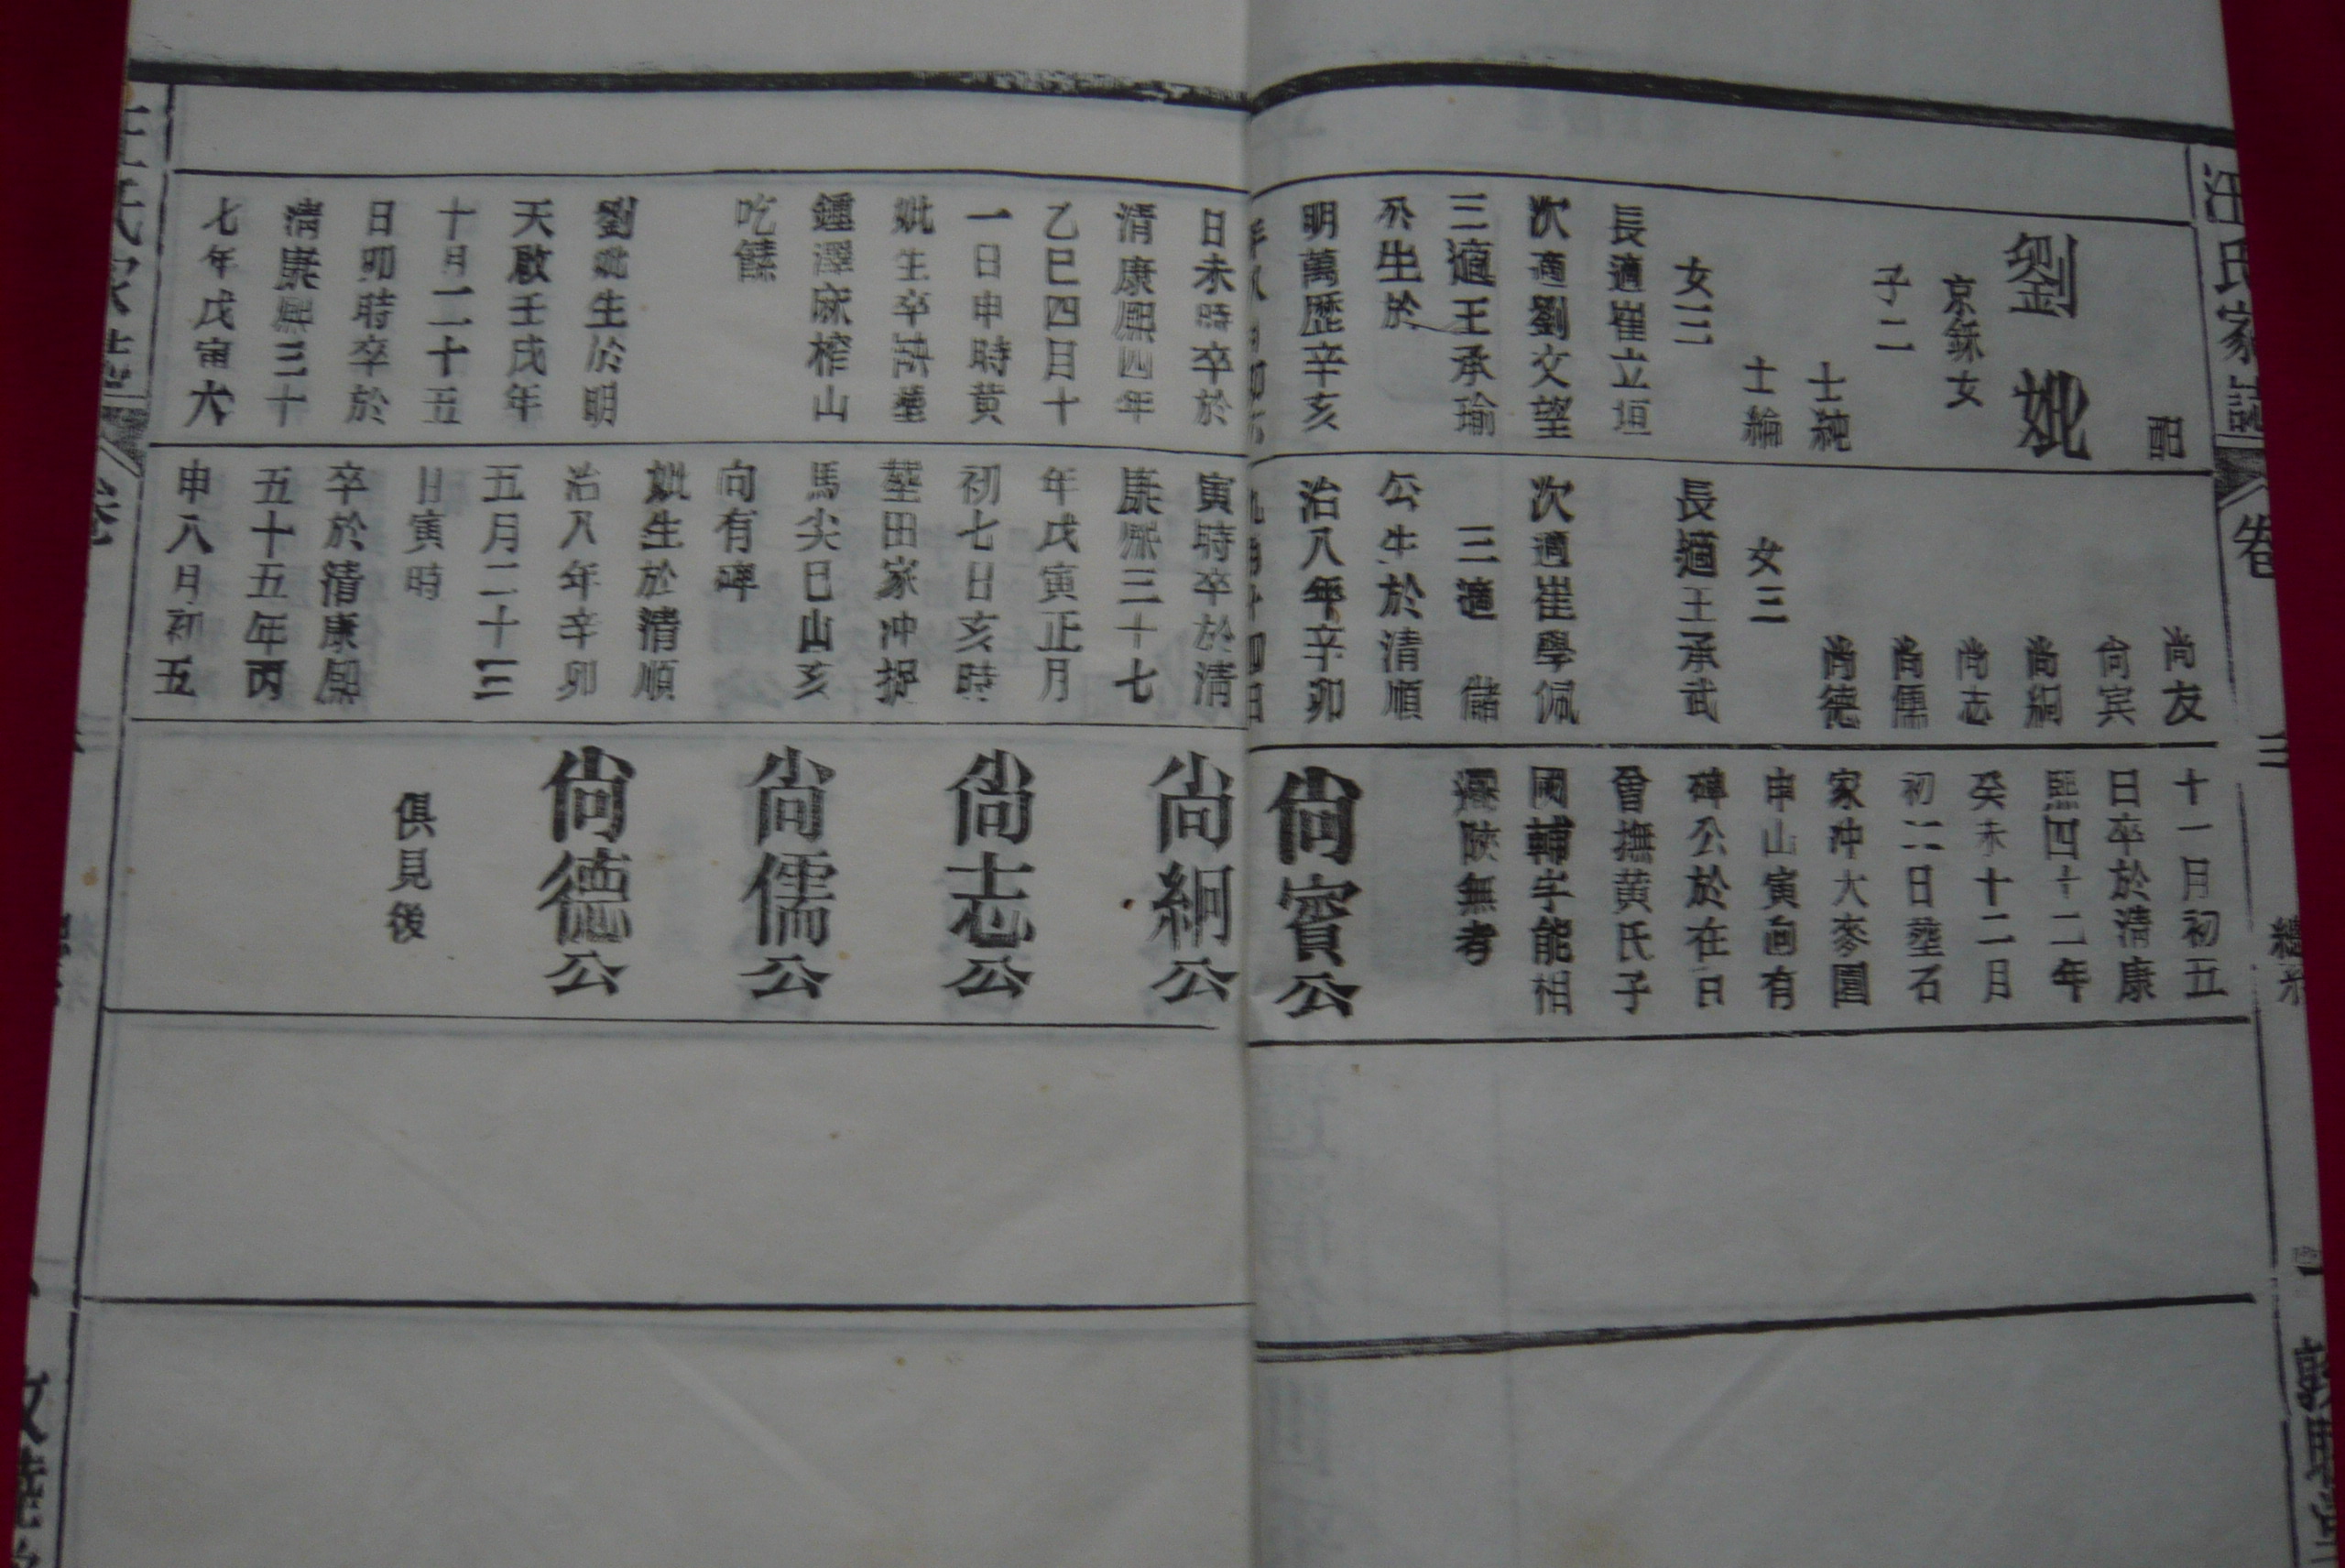 汪氏家譜
卷
配
劉妣
京鉌女
子二
士純
士綸
女三
長適崔立垣
次適劉文望
三適王承瑜
公生於
明萬歷辛亥
日未時卒於
清康熙四年
乙巳四月十
一日申時黄
妣生卒缺塟
鍾澤麻榨山
吃饆
劉妣生於明
天啟壬戌年
十月二十五
日卯時卒於
清康熙三十
七年戊寅六
尚友
尚宾
尚絅
尚志
尚儒
尚德
女三
長適王承武
次適崔學佩
三適 儲
公生於清順
治八年辛卯
九月十四日
寅時卒於清
康熙三十七
年戊寅正月
初七日亥時
塟田家冲
馬尖巳山亥
向有碑
妣生於清順
治八年辛卯
五月二十三
日寅時
卒於清康熙
五十五年丙
申八月初五
十一月初五
日卒於清康
熙四十二年
癸未十二月
初二日塟石
家冲大麥園
申山寅向有
碑公於在日
曾撫黄氏子
國輔字能相
陝無考
尚賓公
尚絅公
尚志公
尚儒公
尚德公
俱見後